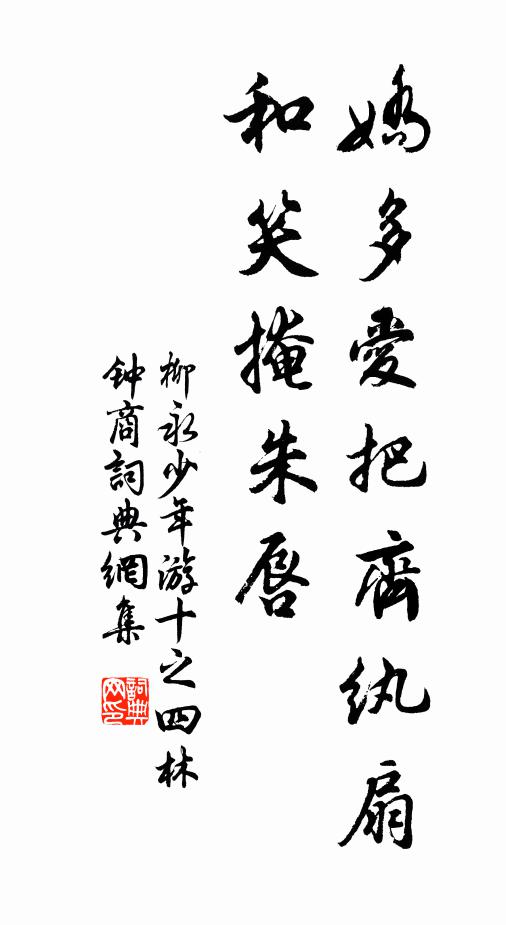 嬌多愛把齊紈扇
和笑掩朱唇
柳永少年游十之四林
钟商詞典網集
詞典
网印